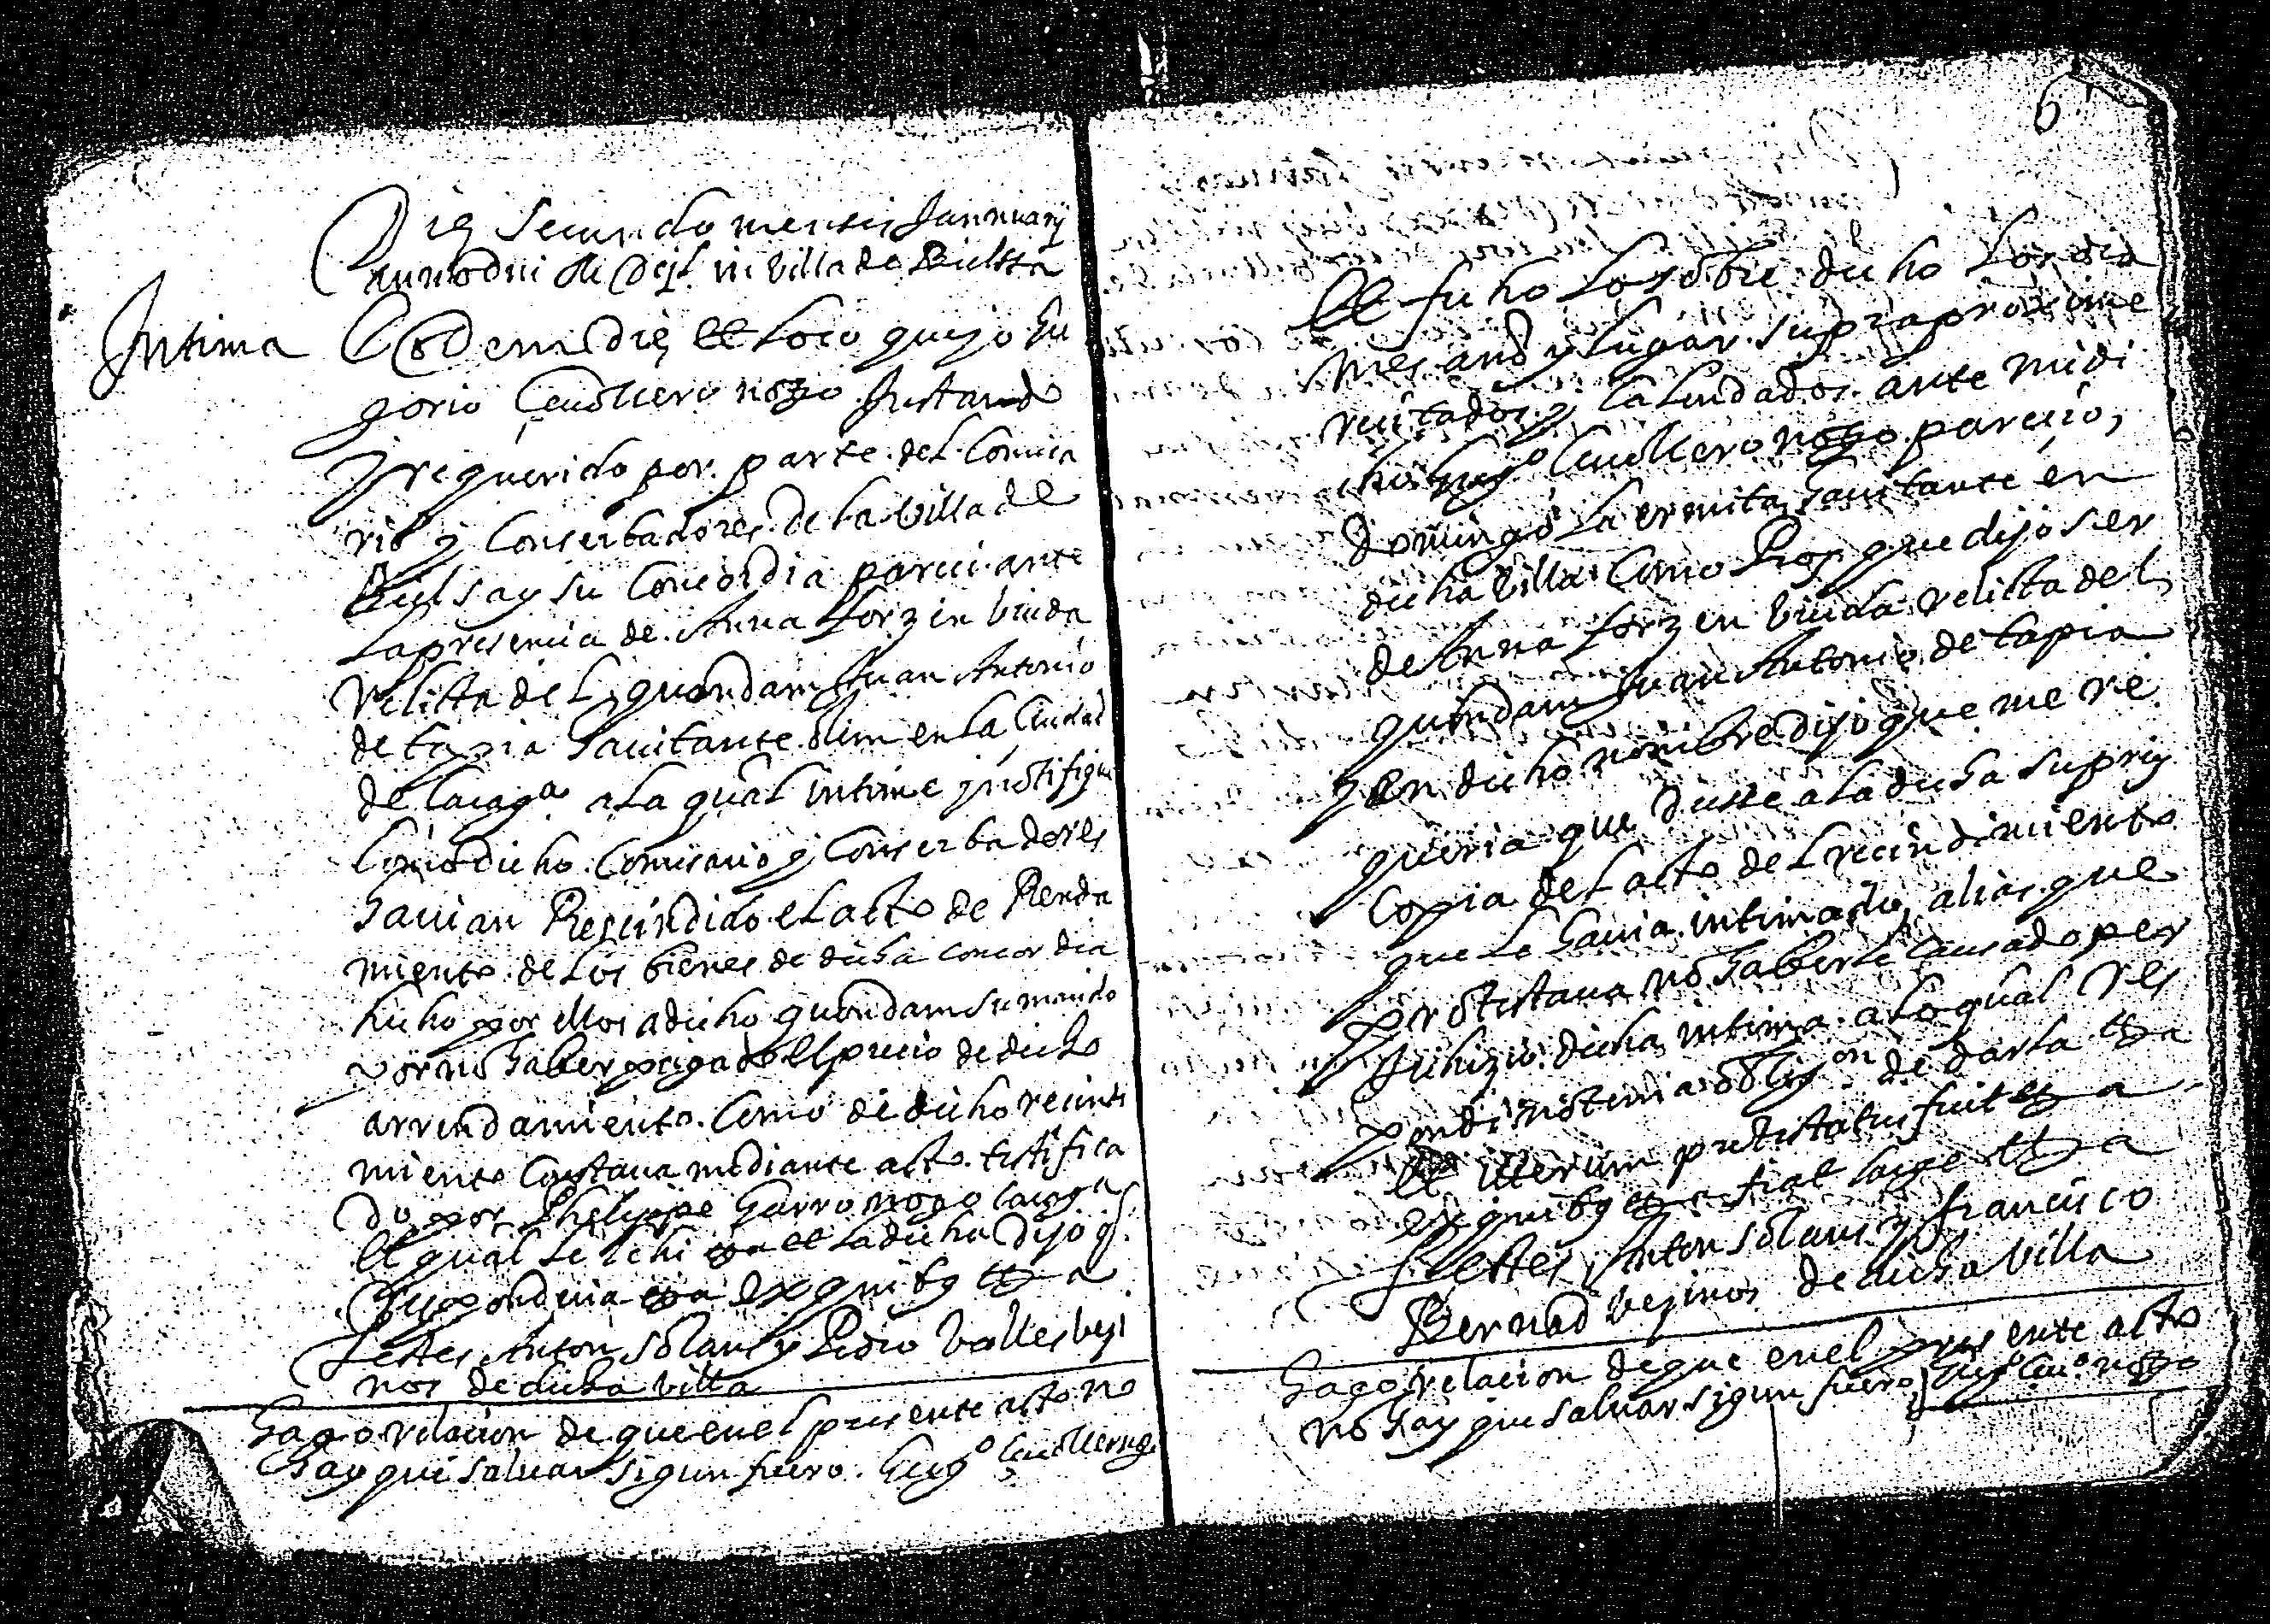 Die Secundo mensis Jannuarij
anno dni M Dcjl. in villa de Bielssa
Intima
Eodem die et loco que yo Gu
gorio Cauallero nog.o Instando
y requerido por parte del Comisa
rio y Conserbadores de la Villa de
Bielsa y su Concordia pareci ante
la presencia de Anna Lorzen biuda
relicta del quondam Juan Antonio
de tapia hauitante olim en la Ciudad
de Carag.a a la qual intime y notifique
Como dicho Comisario y Conserbadores
hauian Rescindido el acto de Renda
miento de los bienes de dicha concordia
hecho por ellos a dicho quondam su marido
por no haber pagado el precio de dicho
arrendamiento. Como de dicho recindi
miento Constaua mediante acto testifica
do por Phelippe Garro nog.o Carag.a
el qual le lehi et la dicha dijo q.
Respondia ex quibus etta
Testes Anton Solans y Pedro Valles beji
nos de dicha villa
Hago relacion de que en el presente acto no
hay que saluar sigun fuero. Gug.o Cauallero ng.o
6
Et fecho lo sobre dicho los dia
mes ano y lugar supra proxime
recitados y Calendados. ante mi di
cho Gug.o Cauallero nogo. parecio,
Domingo la ermita hauitante en
dicha villa Como Pror que dijo ser
de Anna Lorzen biuda relicta del
quondam Juan Antonio de tapia
y en dicho nombre dijo que me re
queria que diesse a la dicha su prin
Copia del acto del recindimiento
que le hauia intimado, alias que
protestaua no haberle Causado per
Juhizio dicha intima. a lo qual res
pondi no tenia oblig.on de darla etta
et iterum protestatus fuit etta
ex quibus etta fiat large etta
Testes Anton Solans y francisco
Bernad bezinos de dicha Villa
Hago relacion de que en el presente acto
no hay que saluar sigun fuero, Gug.o Cau.o nogo